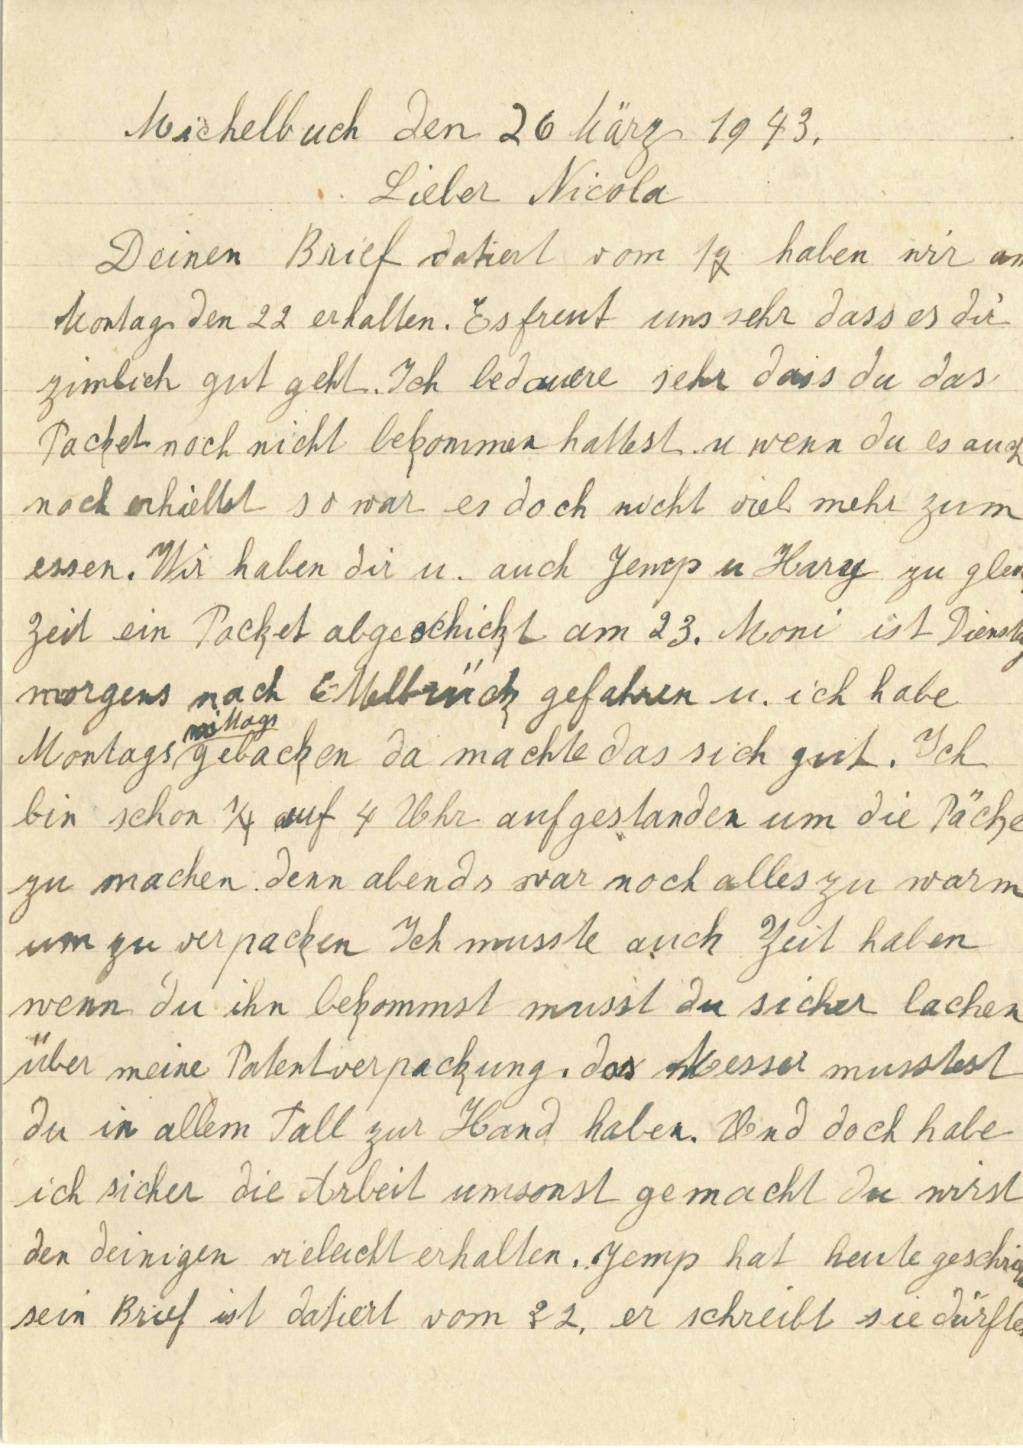 Michelbuch den 26 März 1943.
Lieber Nicola
Deinen Brief datiert vom 17 haben wir am
Montag den 22 erhalten. Es freut uns sehr dass es dir
zimlich gut geht. Ich bedauere sehr dass du das
Packet noch nicht bekommen hattest u wenn du es auch
noch erhieltst so war es doch nicht viel mehr zum
essen. Wir haben dir u. auch Jemp u Hary zu gleich
Zeit ein Packet abgeschickt am 23. Moni ist Dienstag
morgens nach Ettelbrück gefahren u. ich habe
Montags mittags gebacken da machte das sich gut. Ich
bin schon ¼ auf 4 Uhr aufgestanden um die Päcke
zu machen denn abends war noch alles zu warm
um zu verpacken Ich musste auch Zeit haben
wenn du ihn bekommst musst du sicher lachen
über meine Patentverpackung. das Messer musstest
du in allem Fall zur Hand haben. Und doch habe
ich sicher die Arbeit umsonst gemacht du wirst
den deinigen vieleicht erhalten. Jemp hat heute
sein Brief ist datiert vom 22, er schreibt sie dürften